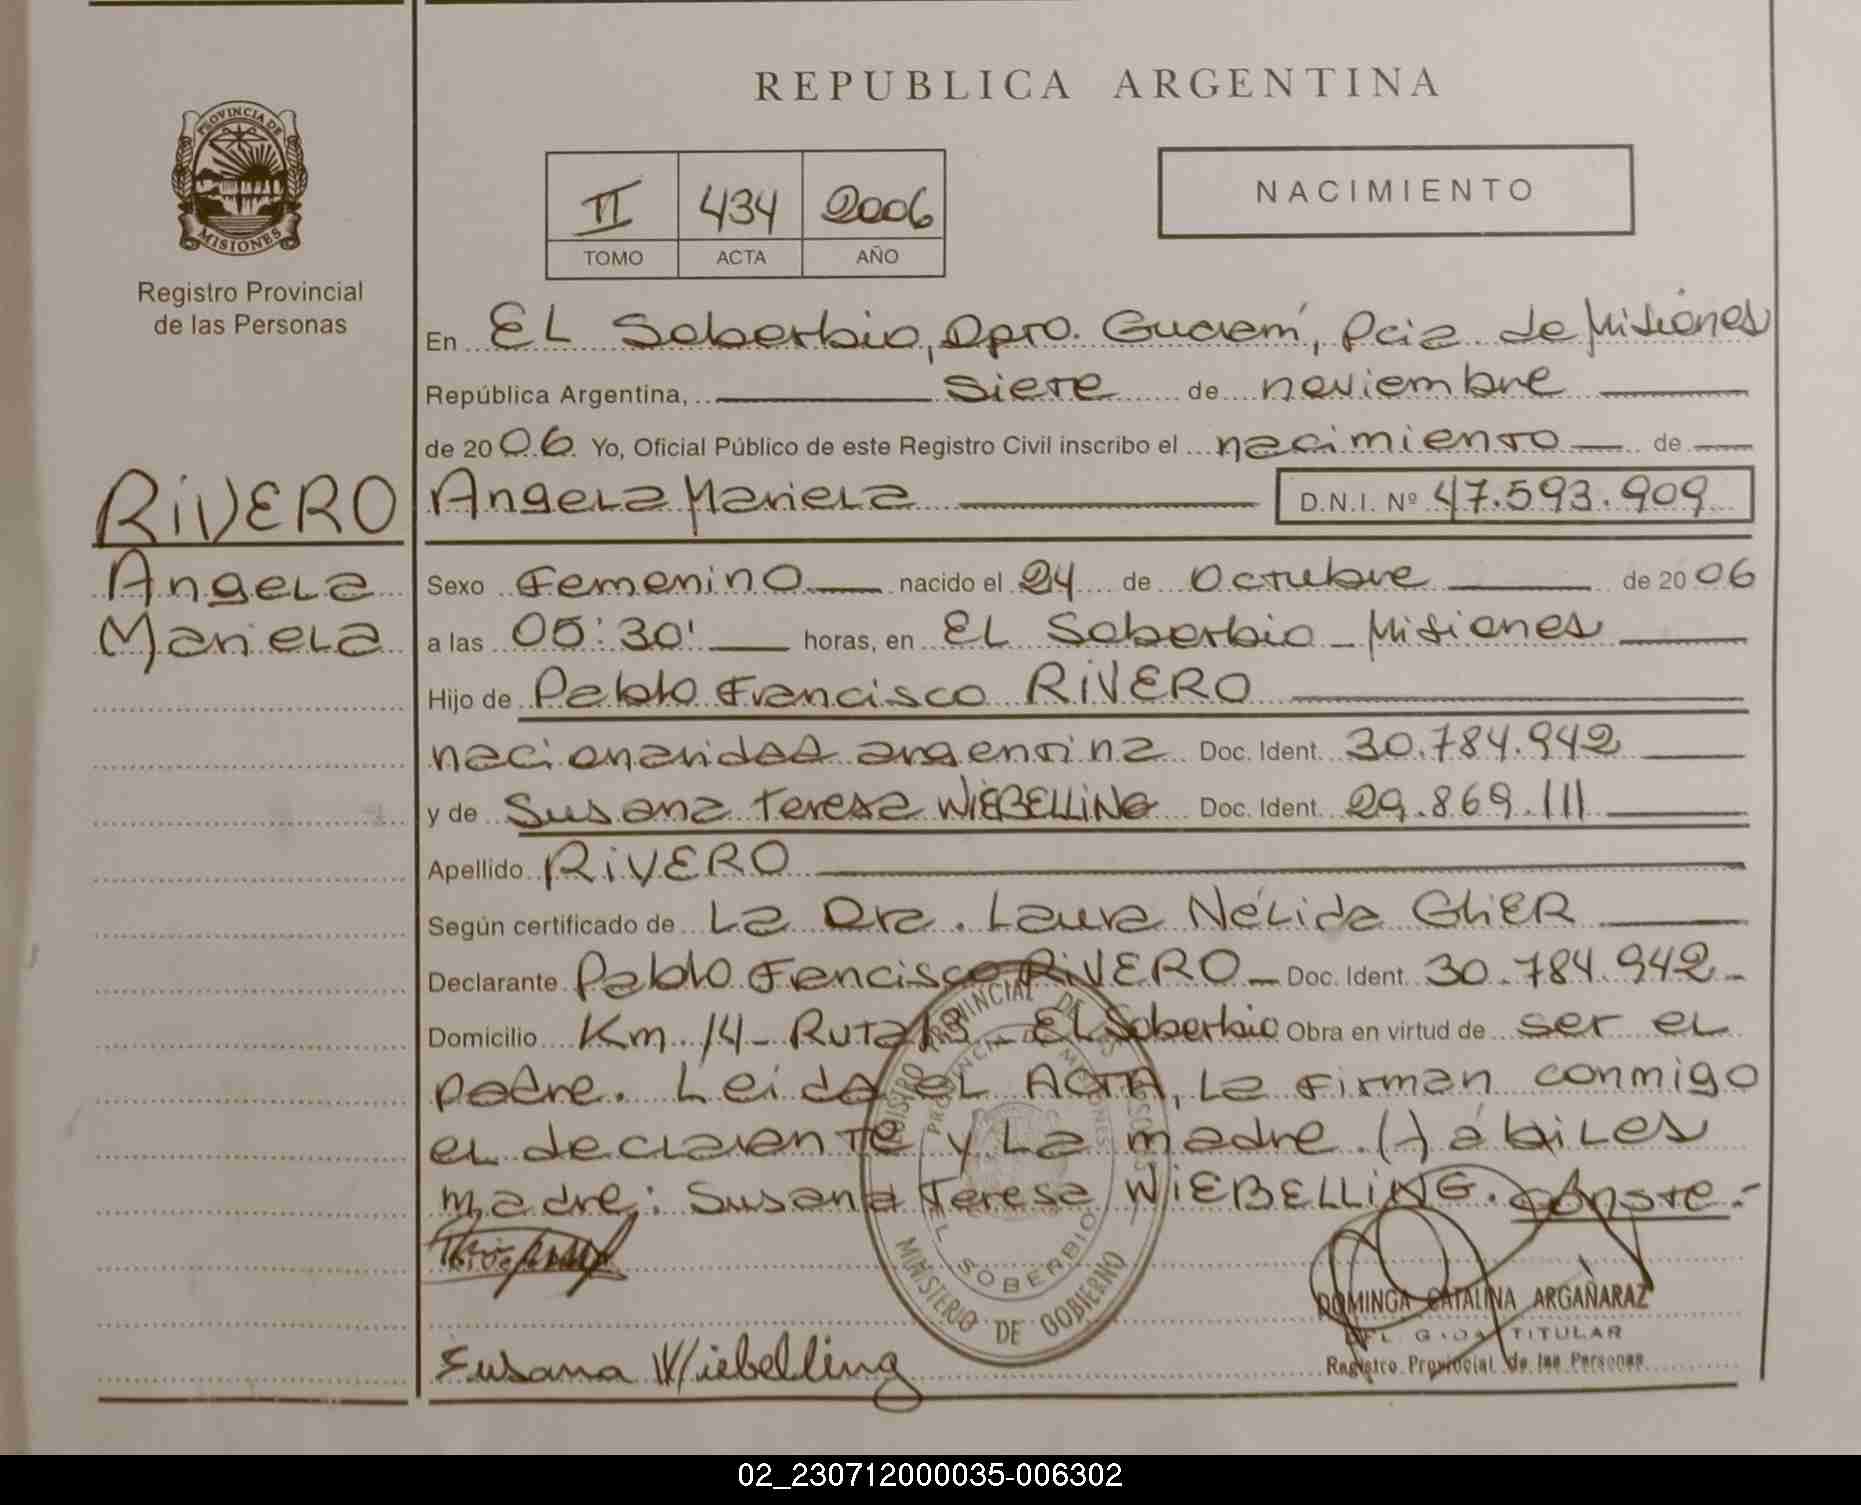 PROVINCIA DE
MISIONES
Registro Provincial
de las Personas
REPUBLICA ARGENTINA
II 434 2006
TOMO ACTA AÑO
NACIMIENTO
En EL Soberbio, Dpto. Guaraní, Pcia de Misiones
República Argentina, siete de noviembre
de 2006 Yo, Oficial Público de este Registro Civil inscribo el nacimiento de
RIVERO
Angela Mariela
Angela Mariela D.N.I. Nº 47.593.909
Sexo Femenino nacido el 24 de Octubre de 2006
a las 05:30' horas, en EL Soberbio - Misiones
Hijo de Pablo Francisco RIVERO
nacionalidad argentina Doc. Ident. 30.784.942
y de Susana Teresa WIEBELLING Doc. Ident. 29.869.111
Apellido RIVERO
Según certificado de La Dra. Laura Nélida GLIER
Declarante Pablo Francisco RIVERO - Doc. Ident. 30.784.942 -
Domicilio Km. 14 - Ruta 13 - EL Soberbio Obra en virtud de ser el
padre. Leida el ACTA, la firman conmigo
el declarante y La madre. (-) ábiles
madre: Susana Teresa WIEBELLING. Conste.-
REGISTRO PROVINCIAL DE LAS PERSONAS
PROVINCIA DE MISIONES
EL SOBERBIO
MINISTERIO DE GOBIERNO
DOMINGA CATALINA ARGAÑARAZ
TITULAR
Registro Provincial de las Personas
Susana Wiebelling
02_230712000035-006302